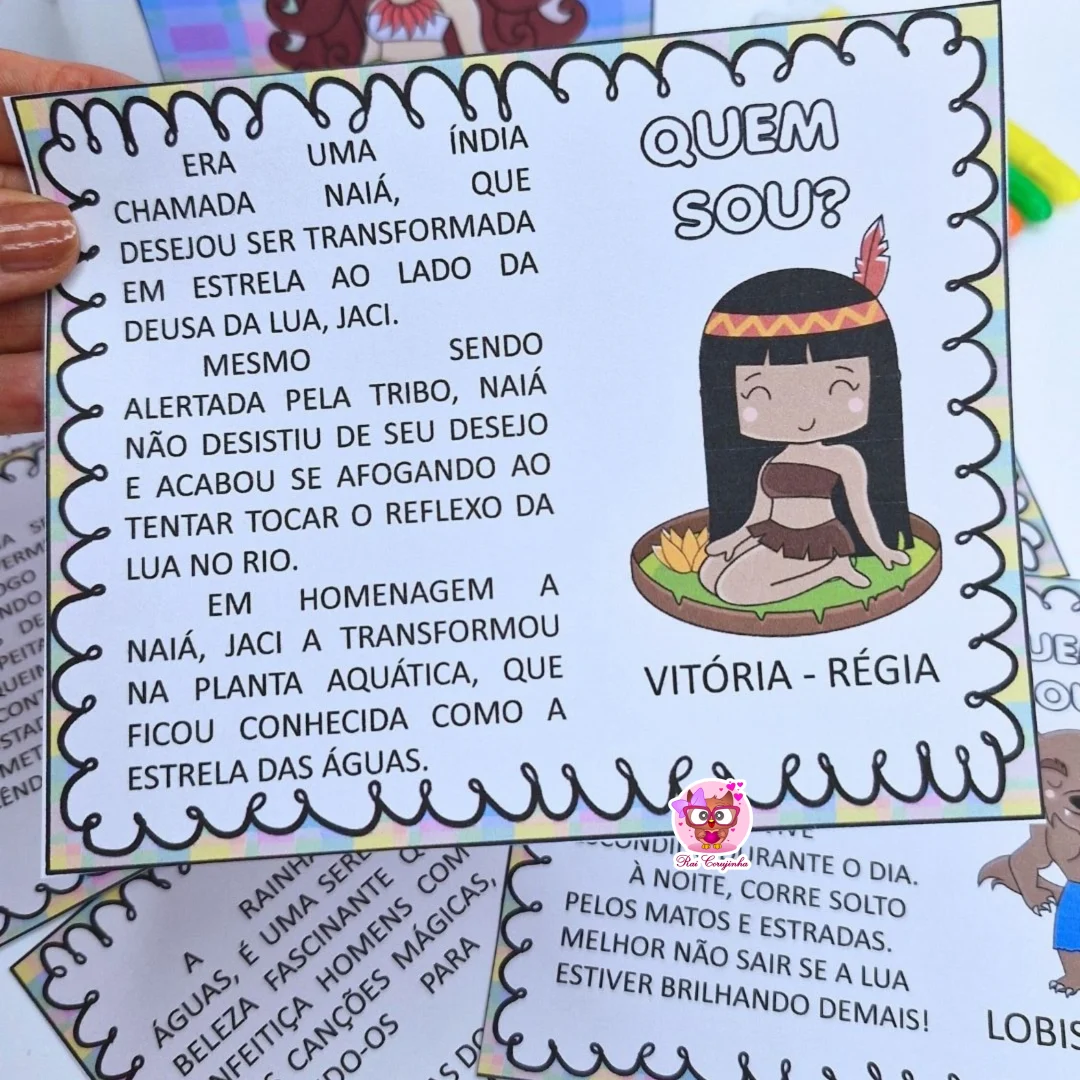 ERA UMA ÍNDIA
CHAMADA NAIÁ, QUE
DESEJOU SER TRANSFORMADA
EM ESTRELA AO LADO DA
DEUSA DA LUA, JACI.
MESMO SENDO
ALERTADA PELA TRIBO, NAIÁ
NÃO DESISTIU DE SEU DESEJO
E ACABOU SE AFOGANDO AO
TENTAR TOCAR O REFLEXO DA
LUA NO RIO.
EM HOMENAGEM A
NAIÁ, JACI A TRANSFORMOU
NA PLANTA AQUÁTICA, QUE
FICOU CONHECIDA COMO A
ESTRELA DAS ÁGUAS.
QUEM
SOU?
VITÓRIA - RÉGIA
Rai Corujinha
A
ÁGUAS, É UMA
BELEZA FASCINANTE
HOMENS COM
CANÇÕES MÁGICAS,
PARA
O DIA.
À NOITE, CORRE SOLTO
PELOS MATOS E ESTRADAS.
MELHOR NÃO SAIR SE A LUA
ESTIVER BRILHANDO DEMAIS!